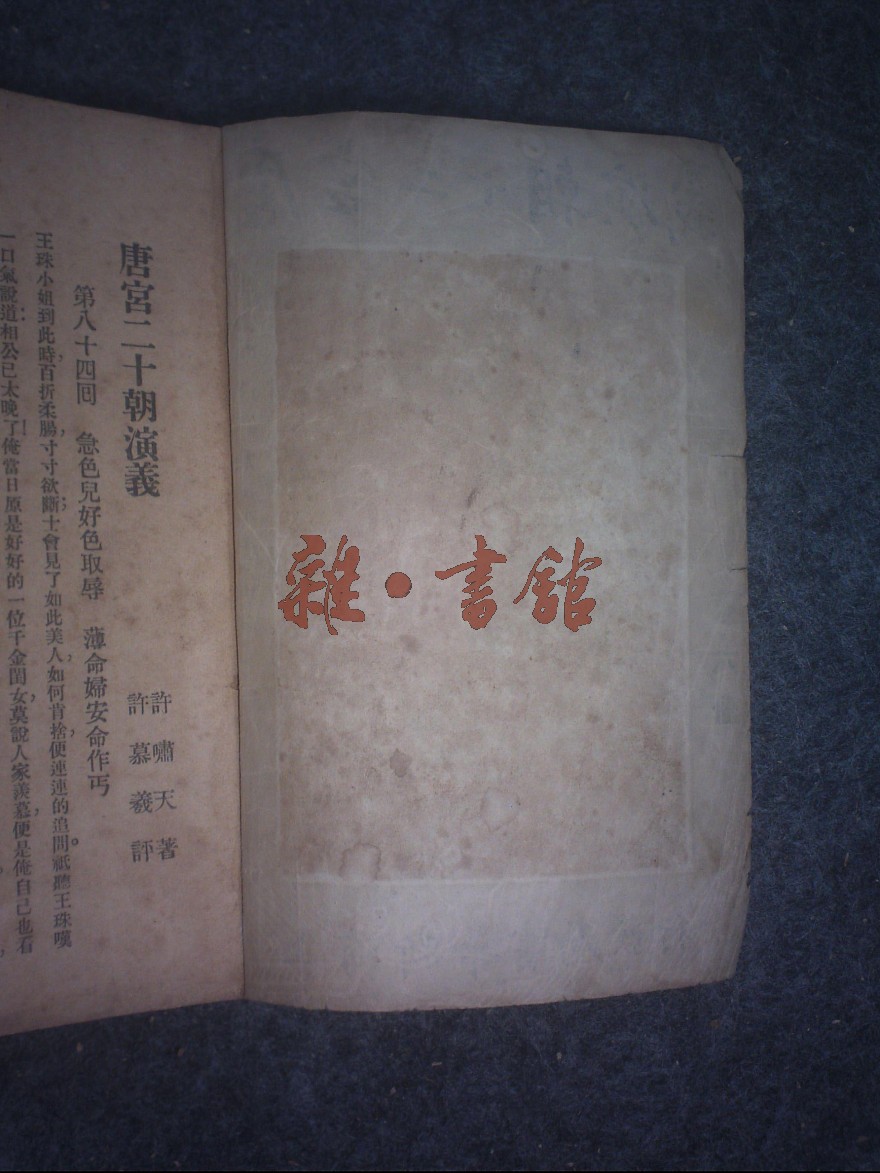 雜·書館
唐宮二十朝演義
許嘯天著
許慕羲評
第八十四回 急色兒好色取辱 薄命婦安命作丐
王珠小姐到此時,百折柔腸,寸寸欲斷;士會見了如此美人,如何肯捨,便連連的追問。祇聽王珠嘆
一口氣說道:相公已太晚了!俺當日原是好好的一位千金閨女,莫說人家羨慕,便是俺自己也看